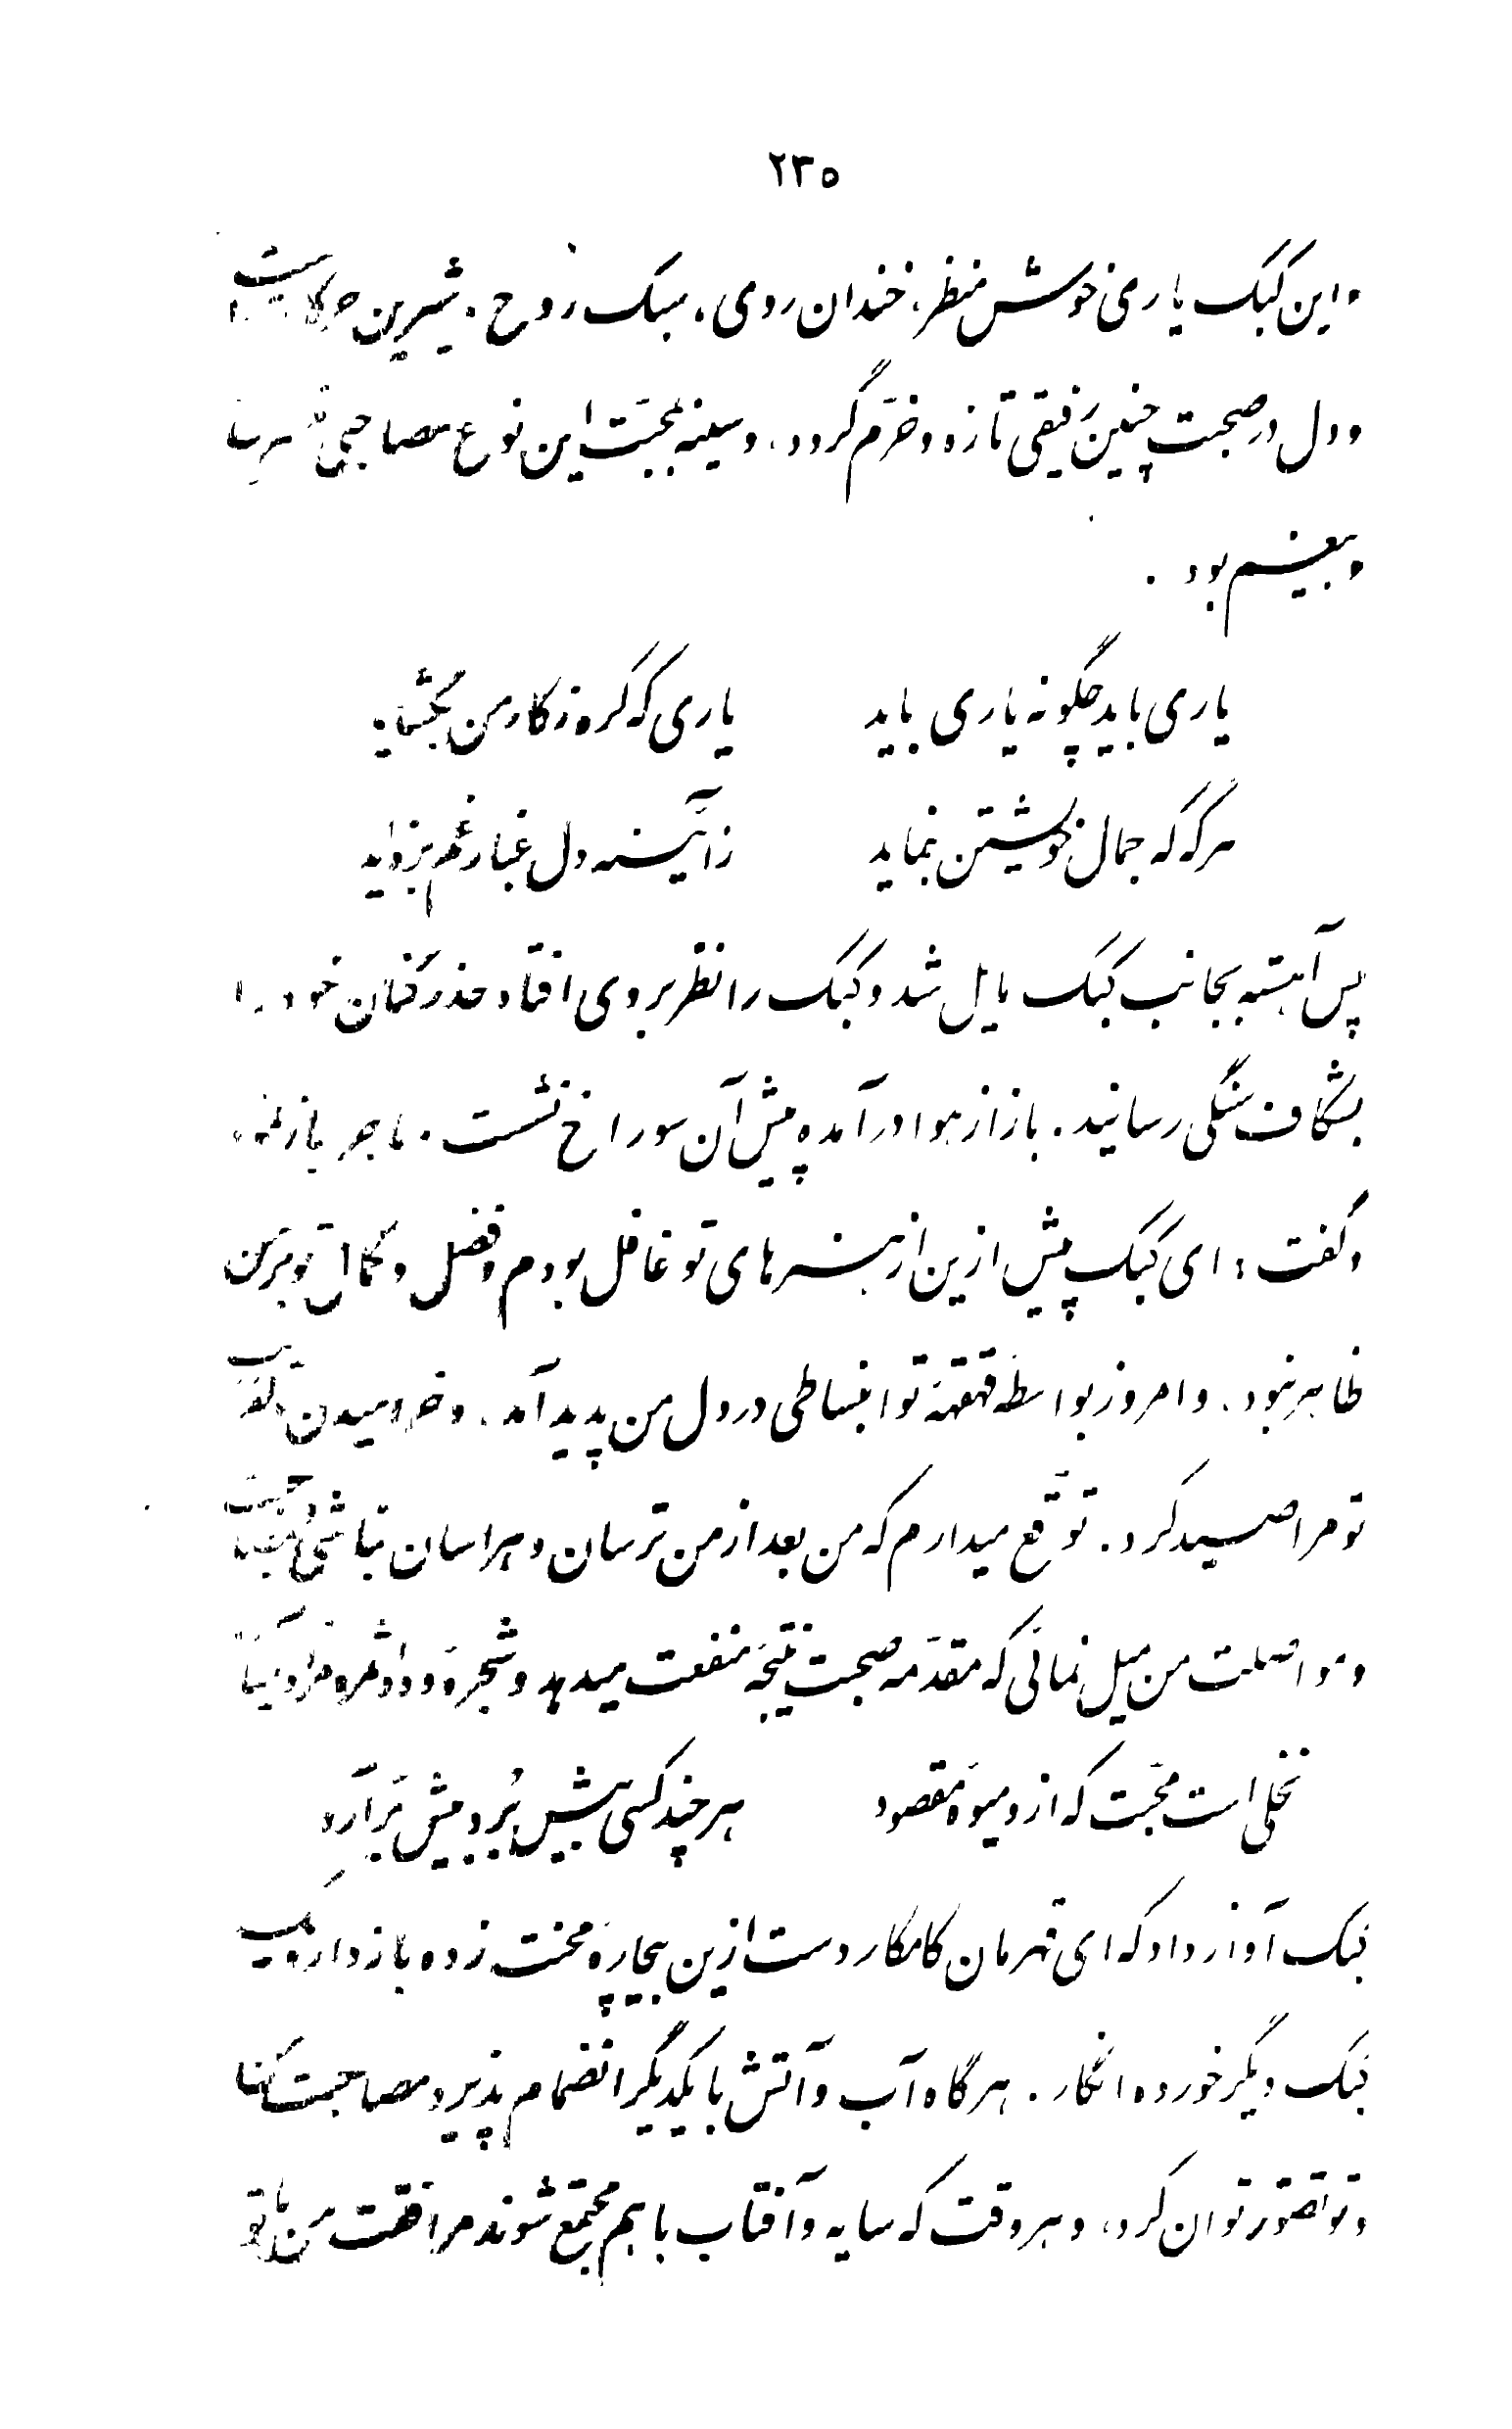 ۲۳۵
و این کبک یاری خوش منظر، خندان روی، سبک روح، شیرین حرکات است
و دل در صحبت چنین رفیقی تازه و خرّم گردد، و سینه بمحبّت این نوع مصاحبی
و بیغم بود.
یاری باید چگونه یاری باید یاری که گره ز کار من بگشاید
هرگه که جمال خویشتن بنماید ز آئینه دل غبار غم بزداید
پس آهسته بجانب کبک مایل شد و کبک را نظر بروی افتاد حذر کنان خود را
بشکاف سنگی رسانید. باز از هوا درآمده پیش آن سوراخ نشست. ماجرا باز
و گفت: ای کبک پیش ازین از هنرهای تو غافل بودم و فضل و کمال تو بر من
ظاهر نبود. و امروز بواسطهٔ قهقههٔ تو انبساطی در دل من پدید آمد. و خرامیدن دلفریب
تو مرا صید کرد. توقّع میدارم که من بعد از من ترسان و هراسان نباشی
و مواصلت من میل نمائی که مقدّمه صحبت نتیجه منفعت میدهد و شجرهٔ وداد ثمره مراد
نخلی است محبّت که ازو میوهٔ مقصود هر چند کسی بیش بُرد بیش بَرآرد
کبک آواز داد که ای قهرمان کامکار دست ازین بیچارهٔ محنت زده بازدار و یک
کبک دیگر خورده انگار. هرگاه آب و آتش با یکدیگر انضمام پذیرد مصاحبت
و تو تصوّر توان کرد، و هر وقت که سایه و آفتاب با هم مجتمع شوند مرافقت من با تو